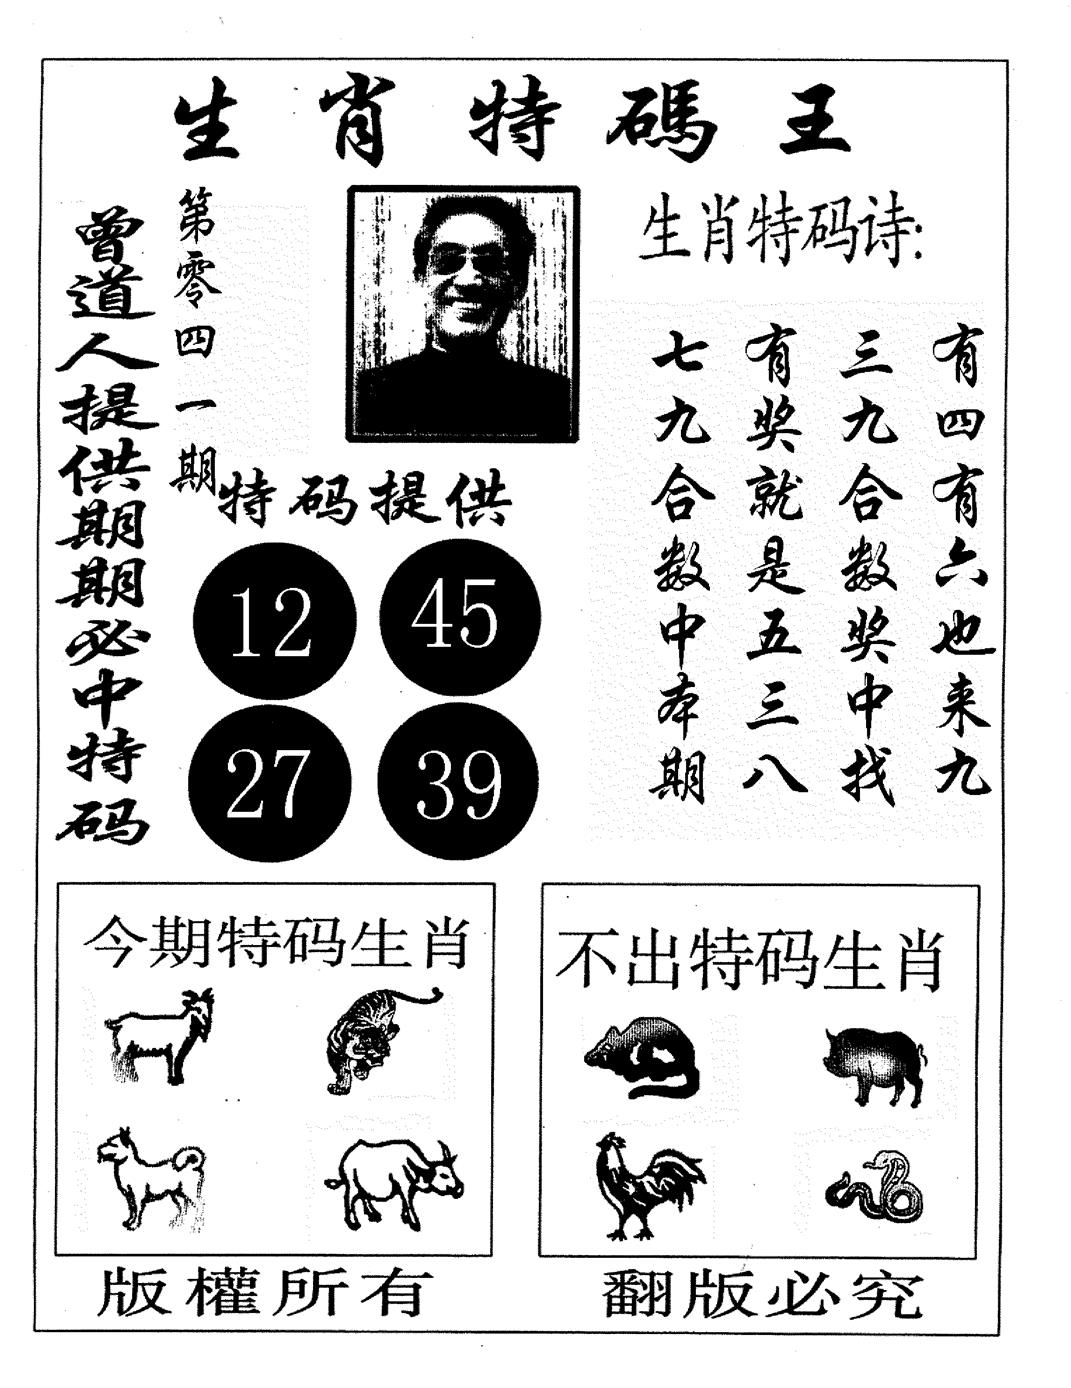 生肖特碼王
曾道人提供期期必中特码
第零四一期
生肖特码诗:
有四有六也来九
三九合数奖中找
有奖就是五三八
七九合数中本期
特码提供
12 45
27 39
今期特码生肖
不出特码生肖
版權所有
翻版必究